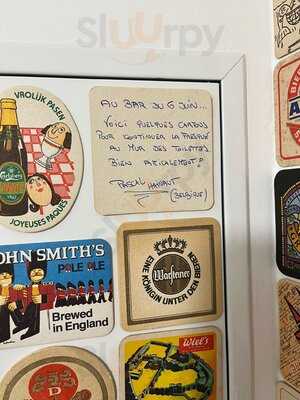 Sluurpy
VROLIJK PASEN
Carlsberg
JOYEUSES PAQUES
AU BAR DU 6 JUIN....
VOICI QUELQUES CARTONS
POUR CONTINUER LA FRESQUE
AU MUR DES TOILETTES
BIEN AMICALEMENT!
PASCAL
(BELGIQUE)
JOHN SMITH'S
PALE ALE
Brewed
in England
EINE KÖNIGIN UNTER DEN BIEREN
Warsteiner
Wiel's